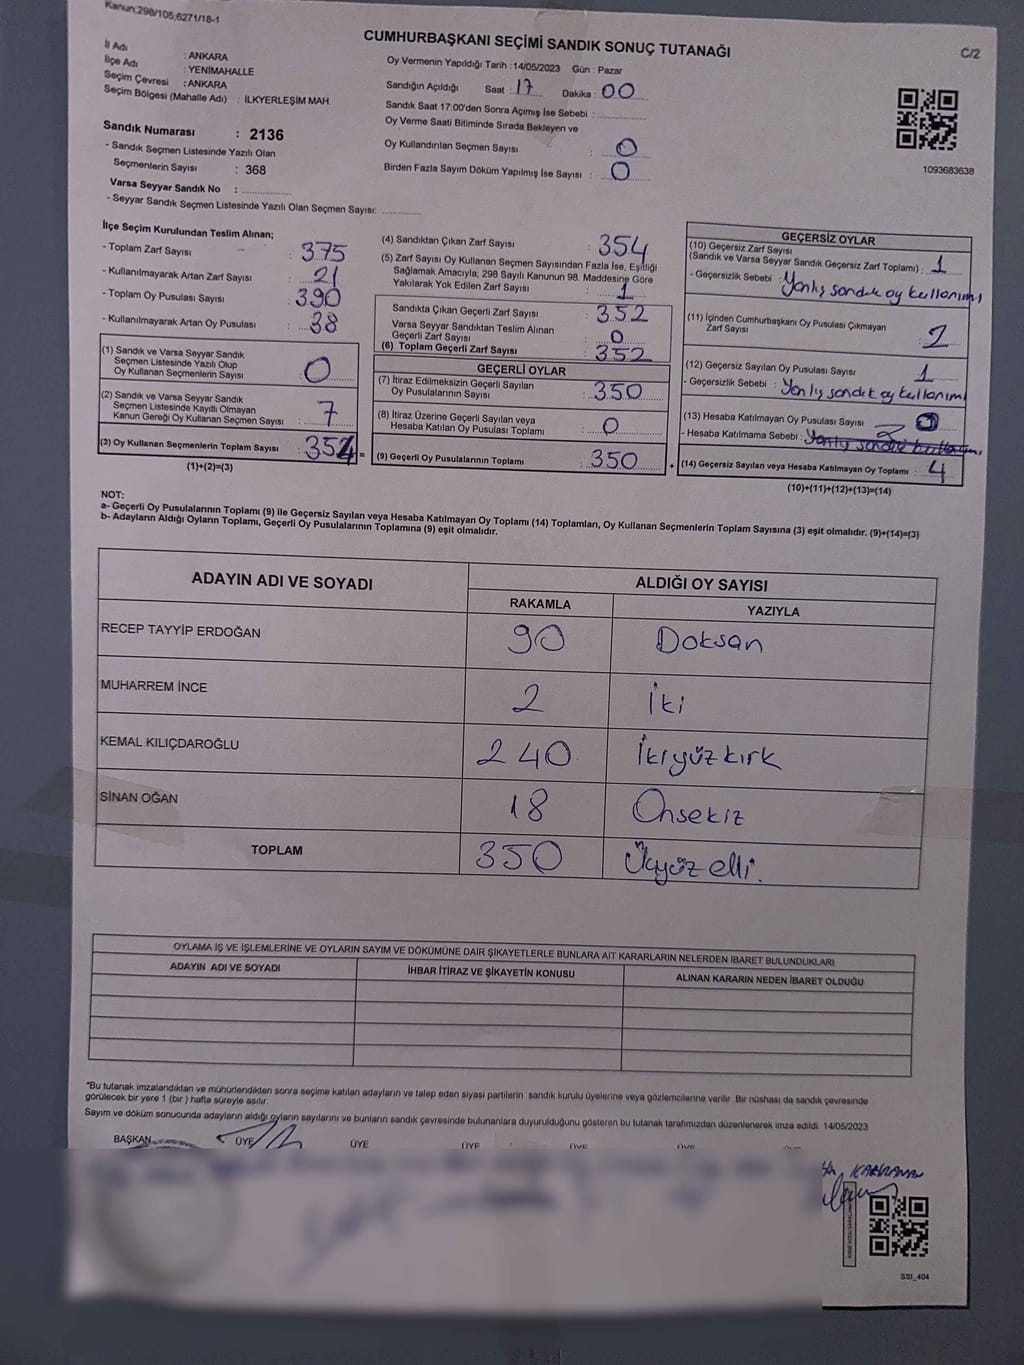 Kanun:298/105,6271/18-1
CUMHURBAŞKANI SEÇİMİ SANDIK SONUÇ TUTANAĞI
C/2
İl Adı : ANKARA
İlçe Adı : YENİMAHALLE
Seçim Çevresi : ANKARA
Seçim Bölgesi (Mahalle Adı) : İLKYERLEŞİM MAH.
Sandık Numarası : 2136
- Sandık Seçmen Listesinde Yazılı Olan
Seçmenlerin Sayısı : 368
Varsa Seyyar Sandık No :
- Seyyar Sandık Seçmen Listesinde Yazılı Olan Seçmen Sayısı:
Oy Vermenin Yapıldığı Tarih :14/05/2023 Gün : Pazar
Sandığın Açıldığı Saat : 17 Dakika : 00
Sandık Saat 17:00'den Sonra Açımış İse Sebebi :
Oy Verme Saati Bitiminde Sırada Bekleyen ve
Oy Kullandırılan Seçmen Sayısı : 0
Birden Fazla Sayım Döküm Yapılmış İse Sayısı : 0
1093683638
İlçe Seçim Kurulundan Teslim Alınan;
- Toplam Zarf Sayısı : 375
- Kullanılmayarak Artan Zarf Sayısı : 21
- Toplam Oy Pusulası Sayısı : 390
- Kullanılmayarak Artan Oy Pusulası : 38
(1) Sandık ve Varsa Seyyar Sandık
Seçmen Listesinde Yazılı Olup
Oy Kullanan Seçmenlerin Sayısı : 0
(2) Sandık ve Varsa Seyyar Sandık
Seçmen Listesinde Kayıtlı Olmayan
Kanun Gereği Oy Kullanan Seçmen Sayısı : 7
(3) Oy Kullanan Seçmenlerin Toplam Sayısı : 354 =
(1)+(2)=(3)
(4) Sandıktan Çıkan Zarf Sayısı : 354
(5) Zarf Sayısı Oy Kullanan Seçmen Sayısından Fazla İse, Eşitliği
Sağlamak Amacıyla; 298 Sayılı Kanunun 98. Maddesine Göre
Yakılarak Yok Edilen Zarf Sayısı : 1
Sandıkta Çıkan Geçerli Zarf Sayısı : 352
Varsa Seyyar Sandıktan Teslim Alınan
Geçerli Zarf Sayısı : 0
(6) Toplam Geçerli Zarf Sayısı : 352
GEÇERLİ OYLAR
(7) İtiraz Edilmeksizin Geçerli Sayılan
Oy Pusulalarının Sayısı : 350
(8) İtiraz Üzerine Geçerli Sayılan veya
Hesaba Katılan Oy Pusulası Toplamı : 0
(9) Geçerli Oy Pusulalarının Toplamı : 350 +
GEÇERSİZ OYLAR
(10) Geçersiz Zarf Sayısı
(Sandık ve Varsa Seyyar Sandık Geçersiz Zarf Toplamı) : 1
- Geçersizlik Sebebi : Yanlış sandık oy kullanımı
(11) İçinden Cumhurbaşkanı Oy Pusulası Çıkmayan
Zarf Sayısı : 2
(12) Geçersiz Sayılan Oy Pusulası Sayısı : 1
- Geçersizlik Sebebi : Yanlış sandık oy kullanımı
(13) Hesaba Katılmayan Oy Pusulası Sayısı :
- Hesaba Katılmama Sebebi : Yanlış sandık kullanımı
(14) Geçersiz Sayılan veya Hesaba Katılmayan Oy Toplamı : 4
(10)+(11)+(12)+(13)=(14)
NOT:
a- Geçerli Oy Pusulalarının Toplamı (9) ile Geçersiz Sayılan veya Hesaba Katılmayan Oy Toplamı (14) Toplamları, Oy Kullanan Seçmenlerin Toplam Sayısına (3) eşit olmalıdır. (9)+(14)=(3)
b- Adayların Aldığı Oyların Toplamı, Geçerli Oy Pusulalarının Toplamına (9) eşit olmalıdır.
ADAYIN ADI VE SOYADI
ALDIĞI OY SAYISI
RAKAMLA YAZIYLA
RECEP TAYYİP ERDOĞAN 90 Doksan
MUHARREM İNCE 2 İki
KEMAL KILIÇDAROĞLU 240 İkiyüzkırk
SİNAN OĞAN 18 Onsekiz
TOPLAM 350 Üçyüzelli.
OYLAMA İŞ VE İŞLEMLERİNE VE OYLARIN SAYIM VE DÖKÜMÜNE DAİR ŞİKAYETLERLE BUNLARA AİT KARARLARIN NELERDEN İBARET BULUNDUKLARI
ADAYIN ADI VE SOYADI İHBAR İTİRAZ VE ŞİKAYETİN KONUSU ALINAN KARARIN NEDEN İBARET OLDUĞU
*Bu tutanak imzalandıktan ve mühürlendikten sonra seçime katılan adayların ve talep eden siyasi partilerin sandık kurulu üyelerine veya gözlemcilerine verilir. Bir nüshası da sandık çevresinde
görülecek bir yere 1 (bir ) hafta süreyle asılır.
Sayım ve döküm sonucunda adayların aldığı oyların sayılarını ve bunların sandık çevresinde bulunanlara duyurulduğunu gösteren bu tutanak tarafımızdan düzenlenerek imza edildi. 14/05/2023
BAŞKAN ÜYE ÜYE ÜYE ÜYE ÜYE
KAHRAMAN
SSI_404